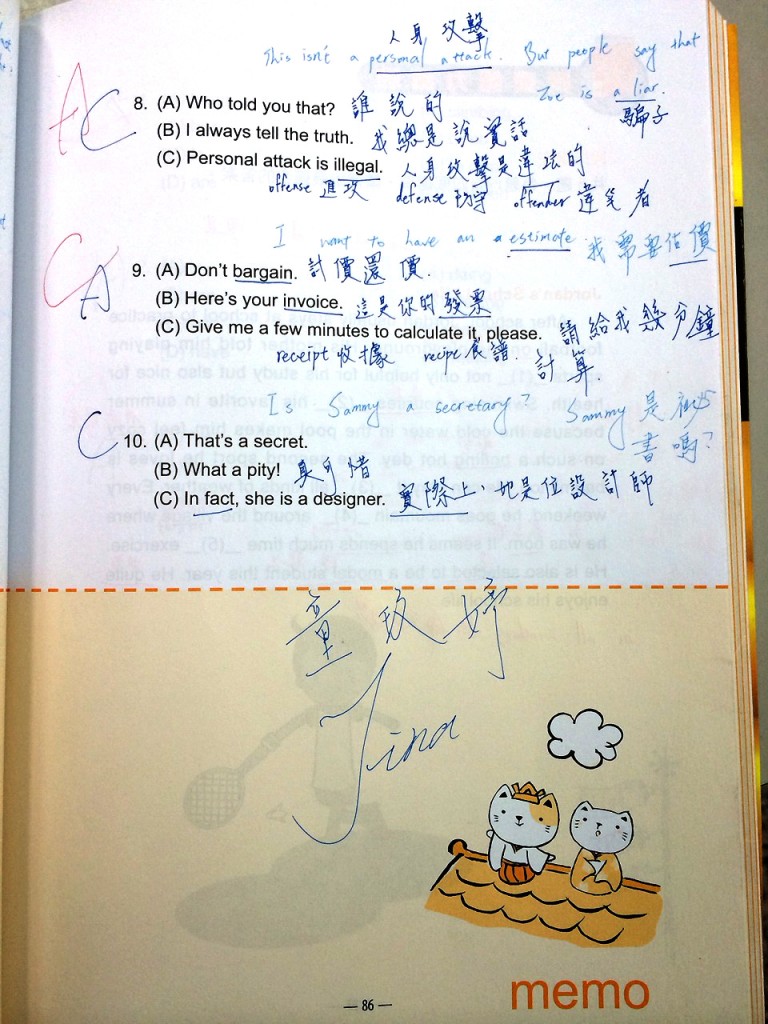 人身攻擊
This isn't a personal attack. But people say that
Zoe is a liar.
騙子
A C 8. (A) Who told you that? 誰說的
(B) I always tell the truth. 我總是說實話
(C) Personal attack is illegal. 人身攻擊是違法的
offense 進攻 defense 防守 offender 違
者
I want to have an a estimate 我需要估價
C A 9. (A) Don't bargain. 討價還價.
(B) Here's your invoice. 這是你的發票
(C) Give me a few minutes to calculate it, please. 請給我幾分鐘
receipt 收據 recipe 食譜. 計算
Is Sammy a secretary? Sammy 是秘
書嗎?
C 10. (A) That's a secret.
(B) What a pity! 真可惜
(C) In fact, she is a designer. 實際上 她是位設計師
童玟婷
Tina
— 86 —
memo